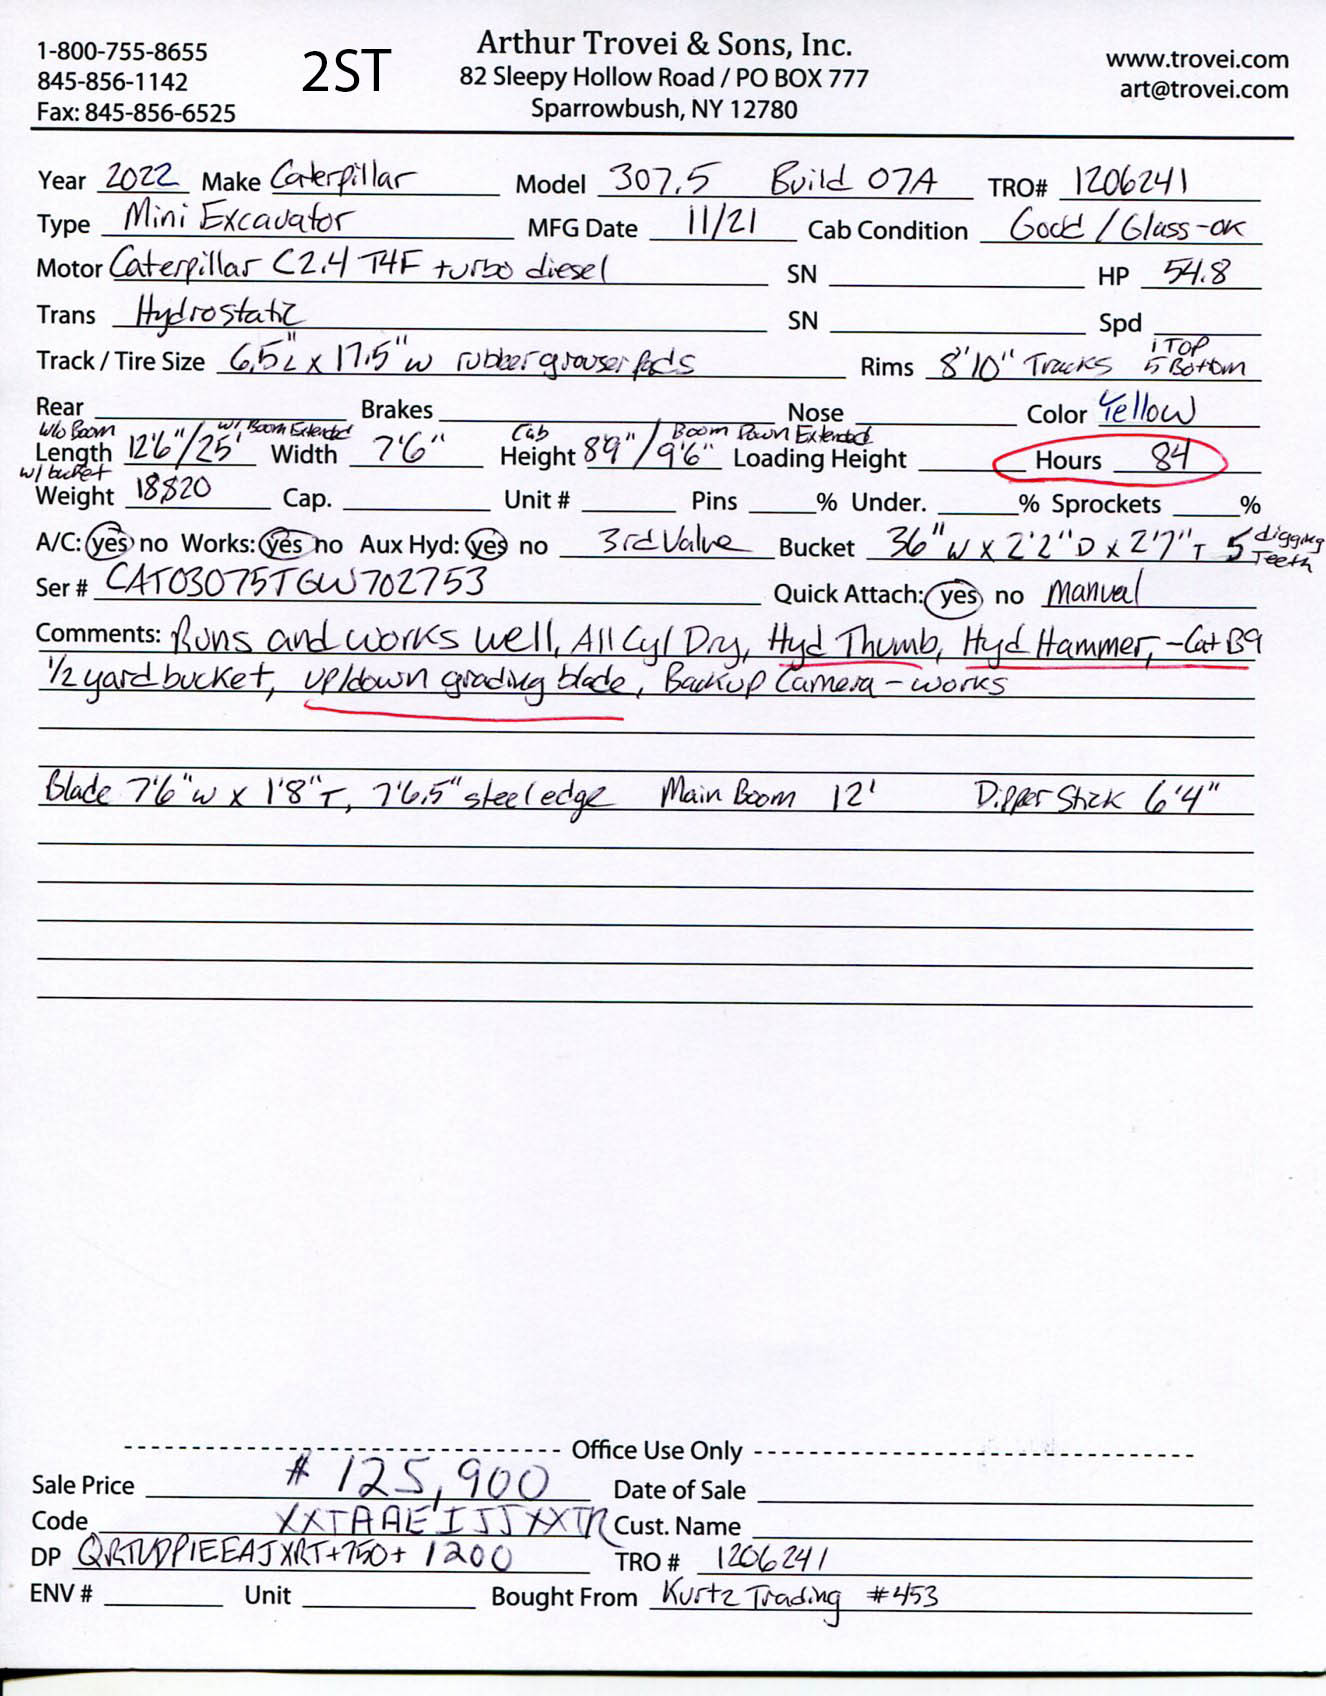 1-800-755-8655
845-856-1142
Fax: 845-856-6525
2ST
Arthur Trovei & Sons, Inc.
82 Sleepy Hollow Road / PO BOX 777
Sparrowbush, NY 12780
www.trovei.com
art@trovei.com
Year 2022 Make Caterpillar Model 307.5 Build 07A TRO# 1206241
Type Mini Excavator MFG Date 11/21 Cab Condition Good / Glass-ok
Motor Caterpillar C2.4 T4F turbo diesel SN HP 54.8
Trans Hydrostatic SN Spd
Track / Tire Size 6.5"L x 17.5"W rubber grouser pads Rims 8'10" Tracks 1 Top 5 Bottom
Rear Brakes Nose Color Yellow
w/o Boom w/ Boom Extended Cab Boom Down Extended
Length 12'6"/25' Width 7'6" Height 8'9"/9'6" Loading Height Hours 84
w/ bucket
Weight 18820 Cap. Unit # Pins % Under. % Sprockets %
A/C: yes no Works: yes no Aux Hyd: yes no 3rd Valve Bucket 36"W x 2'2"D x 2'7"T 5 digging Teeth
Ser # CAT03075TGW702753 Quick Attach: yes no Manual
Comments: Runs and works well, All Cyl Dry, Hyd Thumb, Hyd Hammer, -Cat B9
1/2 yard bucket, up/down grading blade, Backup Camera - works
Blade 7'6"W x 1'8"T, 7'6.5" steel edge Main Boom 12' Dipper Stick 6'4"
Office Use Only
Sale Price $125,900 Date of Sale
Code Cust. Name
DP TRO # 1206241
ENV # Unit Bought From Kurtz Trading #453